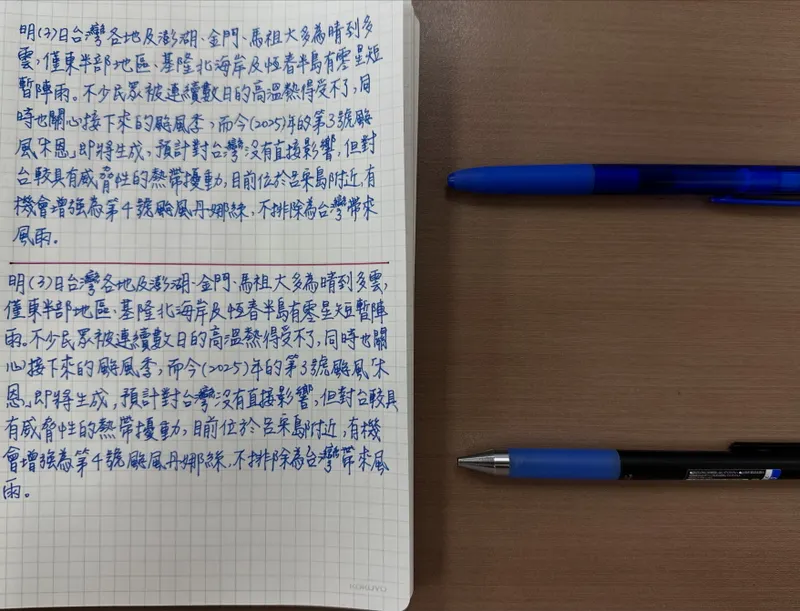 明(3)日台灣各地及澎湖、金門、馬祖大多為晴到多
雲,僅東半部地區、基隆北海岸及恆春半島有零星短
暫陣雨。不少民眾被連續數日的高溫熱得受不了,同
時也關心接下來的颱風季,而今(2025)年的第3號颱
風「木恩」即將生成,預計對台灣沒有直接影響,但對
台較具有威脅性的熱帶擾動,目前位於呂宋島附近,有
機會增強為第4號颱風丹娜絲,不排除為台灣帶來
風雨。
明(3)日台灣各地及澎湖、金門、馬祖大多為晴到多雲,
僅東半部地區、基隆北海岸及恆春半島有零星短暫陣
雨。不少民眾被連續數日的高溫熱得受不了,同時也關
心接下來的颱風季,而今(2025)年的第3號颱風「木
恩」即將生成,預計對台灣沒有直接影響,但對台較具
有威脅性的熱帶擾動,目前位於呂宋島附近,有機
會增強為第4號颱風丹娜絲,不排除為台灣帶來風
雨。